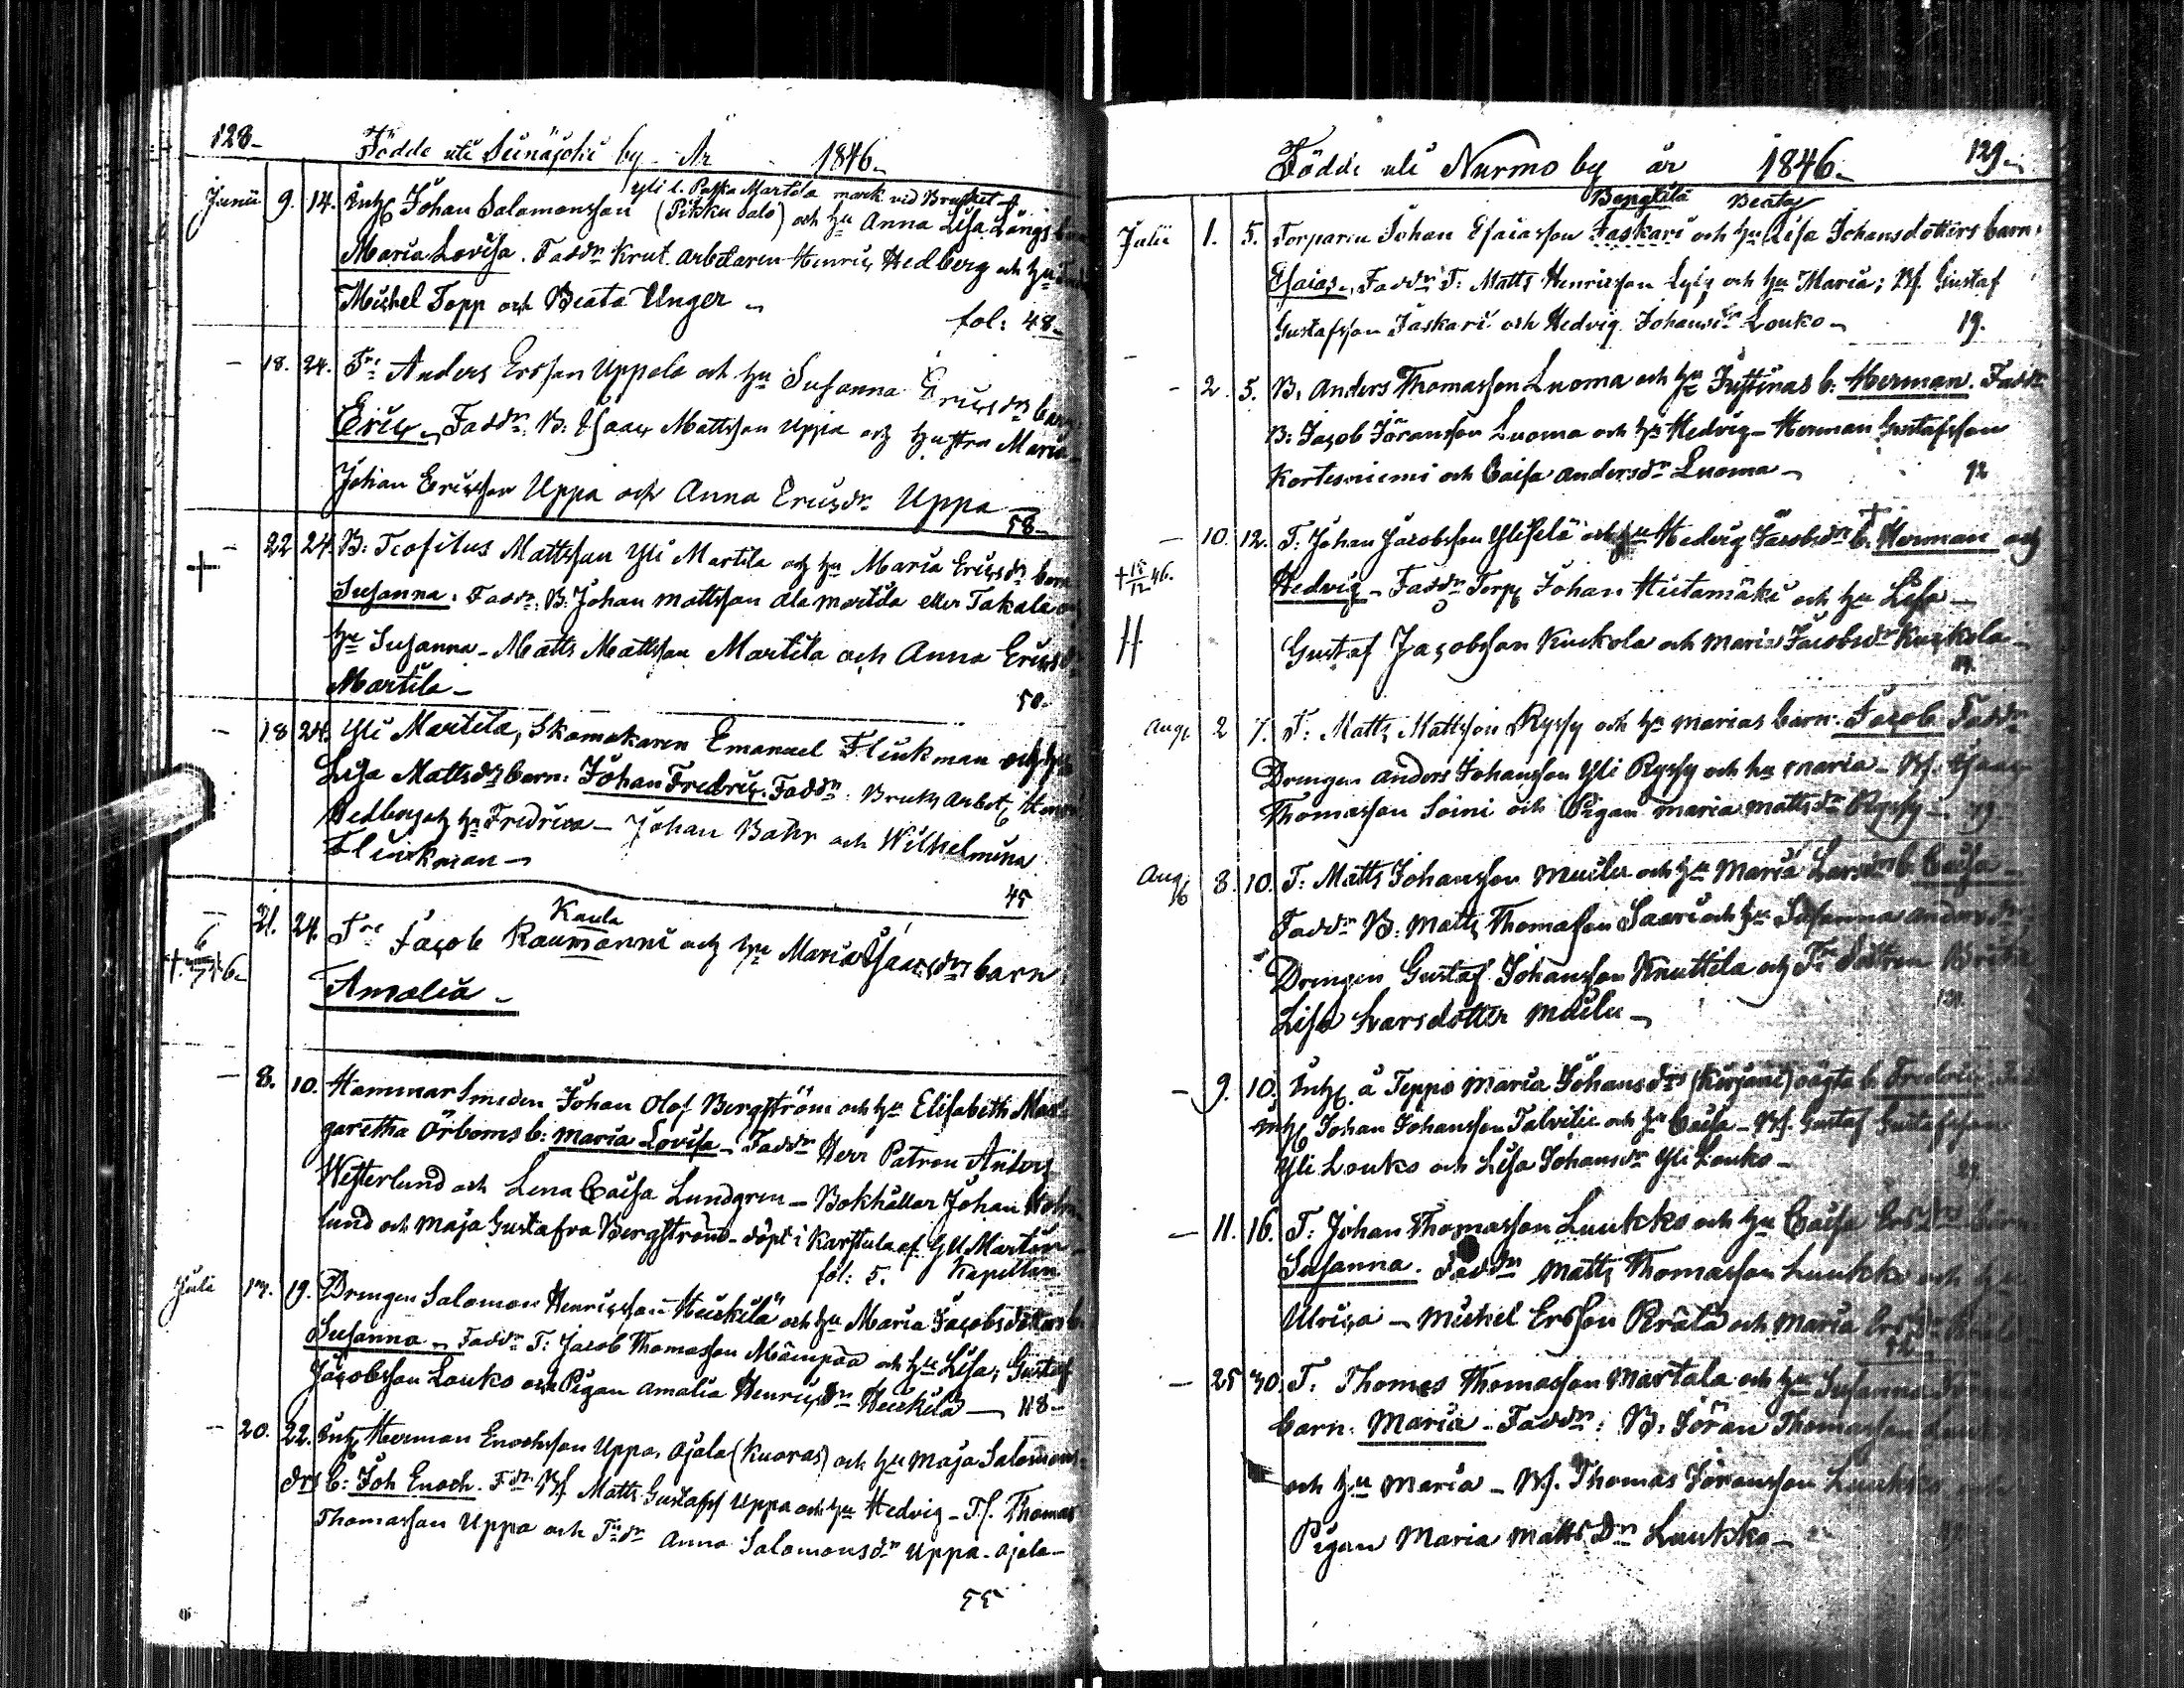 128.
Födde uti Seinäjoki by År 1846.
yli l. Paska Martila mark vid Bruket
Junii 9. 14. Inh Johan Salomonsson (Pikku Salo) och hu Anna Lisa Längs
Maria Lovisa. Faddr Krut arbetaren Henric Hedberg och hu
Michel Topp och Beata Unger
fol: 48
- 18. 24. Anders Ersson Uppala och hu Susanna Ericsdrs barn
Eric. Faddr: B: Isaac Mattsson Uppa och hustru Maria
Johan Ericsson Uppa och Anna Ericsdr Uppa
58
+ - 22 24. B: Teofilus Mattsson Yli Martila och hu Maria Ericsdrs barn
Susanna. Faddr: B: Johan Mattsson Ala Martila eller Takala
hu Susanna - Matts Mattsson Martila och Anna Ericsdr
Martila - 50.
- 18 24. Yli Martila, Skomakaren Emanuel Flinkman och hu
Lisa Mattsdrs barn: Johan Fredric. Faddr: Bruks Arbet
Hedberg och hu Fredrica - Johan Bahr och Wilhelmina
Flinkman
45
Kaula
- 21. 24. Jacob Raumanni och hu Maria Isaacsdrs barn
+ 6/7 46. Amalia
- 8. 10. Hammar Smeden Johan Olof Bergström och hu Elisabeth Mar-
garetha Örboms b: Maria Lovisa. Faddr Herr Patron Anders
Westerlund och Lena Caisa Lundgren - Bokhållar Johan
lund och Maja Gustafva Bergström - döpt i Karstula af Martin
fol: 5. Kapellan
Juli 17. 19. Drengen Salomon Henricsson Heikkilä och hu Maria Jacobsdotters b:
Susanna. Faddr T: Jacob Thomasson Mäenpää och hu Lisa, Gustaf
Jacobsson Louko och Pigan Amalia Henricsdr Heikkilä 48
- 20. 22. Inh Herman Enochsson Uppa, Ojala (Kuoras) och hu Maja Salomons-
drs b: Joh Enoch. Fdr Bs. Matts Gustafss Uppa och hu Hedvig - Ts. Thomas
Thomasson Uppa och Anna Salomonsdr Uppa-Ojala
55
Födde uti Nurmo by år 1846. 129.
Bengtila Beata
Julii 1. 5. Torparen Johan Esaiasson Jaskari och hu Lisa Johansdotters barn:
Esaias. Faddr: T: Matts Henricsson och hu Maria; Bs. Gustaf
Gustafsson Jaskari och Hedvig Johansdr Louko 19.
- 2. 5. B. Anders Thomasson Luoma och hu Justinas b. Herman. Faddr
B: Jacob Jöransson Luoma och hu Hedvig - Herman Gustafsson
Kortesniemi och Caisa Andersdr Luoma 92
+
- 10. 12. T: Johan Jacobsson Yliselä och hu Hedvig Jacobsdrs b. Herman och
+ 15/12 46. Hedvig - Faddr Torp Johan Hietamäki och hu Lisa
Gustaf Jacobsson Kuckola och Maria Jacobsdr Kuckola
Augs 2 7. T: Matts Mattsson Ryssy och hu Marias barn: Jacob. Faddr
Drengen Anders Johansson Yli Ryssy och hu Maria - Bs. Isaac
Thomasson Soini och Pigan Maria Mattsdr Ryssy
Augs 8. 10. T: Matts Johansson Mäelu och hu Maria Larsdrs b. Caisa
Faddr B: Matts Thomasson Saari och hu Susanna Andersdr
Drengen Gustaf Johansson Knuttila och dottren Brita
Lisa Larsdotter Mäelu
- 9. 10. Inh å Teppo Maria Johansdrs (Kirjani) oägta b. Frederic
Inh Johan Johansson Talvitie och hu Caisa - Bs. Gustaf Gustafsson
Yli Louko och Lisa Johansdr Yli Louko
- 11. 16. T: Johan Thomasson Luukko och hu Caisa Ersdrs barn
Susanna. Faddr Matts Thomasson Luukko och hu
Ulrica - Michel Ersson Rråtå och Maria Ersdr
- 25 30. T: Thomas Thomasson Martala och hu Susanna
barn: Maria - Faddr: B: Jöran Thomasson
och hu Maria - Bs. Thomas Jöransson Luukko och
Pigan Maria Mattsdr Luukko